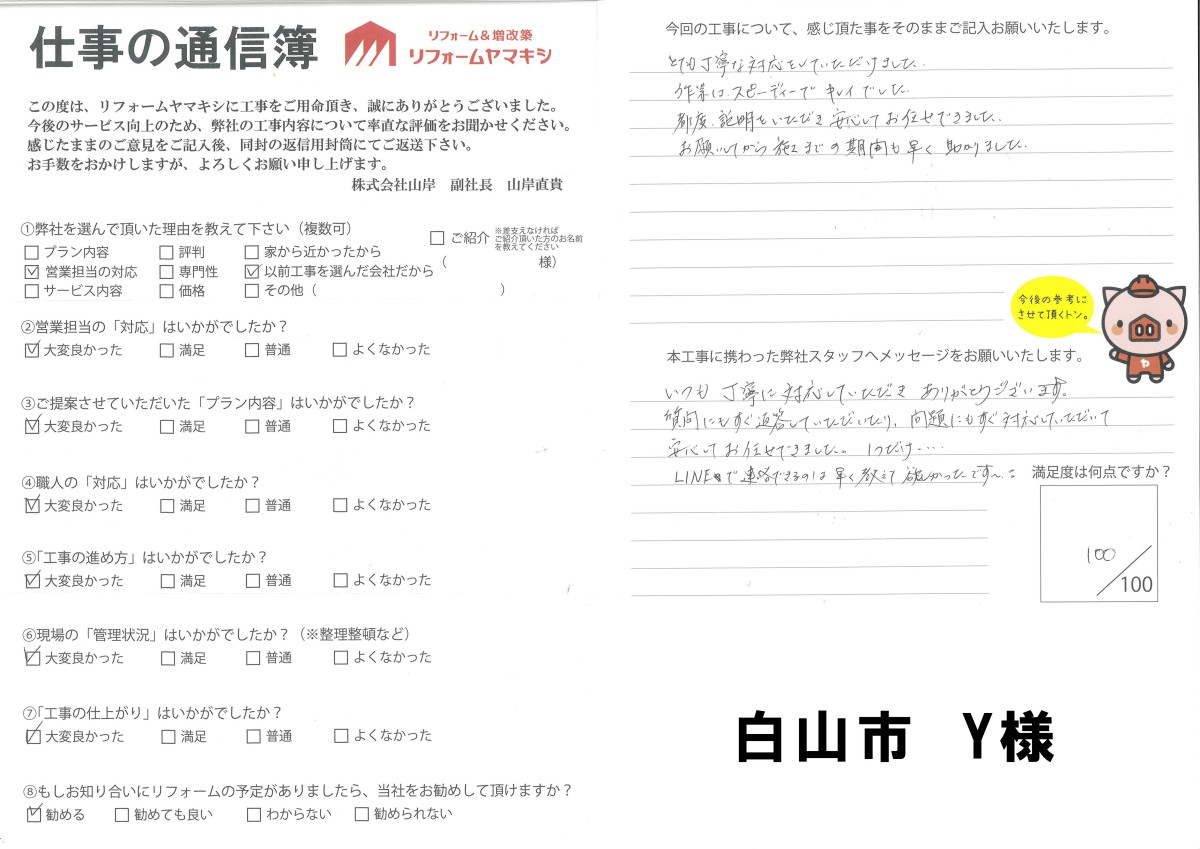 仕事の通信簿
リフォーム&増改築
リフォームヤマキシ
この度は、リフォームヤマキシに工事をご用命頂き、誠にありがとうございました。
今後のサービス向上のため、弊社の工事内容について率直な評価をお聞かせください。
感じたままのご意見をご記入後、同封の返信用封筒にてご返送下さい。
お手数をおかけしますが、よろしくお願い申し上げます。
株式会社山岸 副社長 山岸直貴
①弊社を選んで頂いた理由を教えて下さい(複数可)
□プラン内容 □評判 □家から近かったから
☑営業担当の対応 □専門性 ☑以前工事を選んだ会社だから
□サービス内容 □価格 □その他( )
□ご紹介 ※差支えなければ
ご紹介頂いた方のお名前
を教えてください
( 様)
②営業担当の「対応」はいかがでしたか?
☑大変良かった □満足 □普通 □よくなかった
③ご提案させていただいた「プラン内容」はいかがでしたか?
☑大変良かった □満足 □普通 □よくなかった
④職人の「対応」はいかがでしたか?
☑大変良かった □満足 □普通 □よくなかった
⑤「工事の進め方」はいかがでしたか?
☑大変良かった □満足 □普通 □よくなかった
⑥現場の「管理状況」はいかがでしたか?(※整理整頓など)
☑大変良かった □満足 □普通 □よくなかった
⑦「工事の仕上がり」はいかがでしたか?
☑大変良かった □満足 □普通 □よくなかった
⑧もしお知り合いにリフォームの予定がありましたら、当社をお勧めして頂けますか?
☑勧める □勧めても良い □わからない □勧められない
今回の工事について、感じ頂た事をそのままご記入お願いいたします。
とても丁寧な対応をしていただけました。
作業はスピーディーでキレイでした。
都度、説明をいただき安心してお任せできました。
お願いしてから施工までの期間も早く助かりました。
今後の参考に
させて頂くトン。
ヤ
本工事に携わった弊社スタッフへメッセージをお願いいたします。
いつも丁寧に対応していただき ありがとうございます。
質問にもすぐ返答していただいたり、問題にもすぐ対応していただいて
安心してお任せできました。 1つだけ・・・・
LINEで連絡できるのは早く教えて欲しかったです〜。
満足度は何点ですか?
100
/100
白山市 Y様